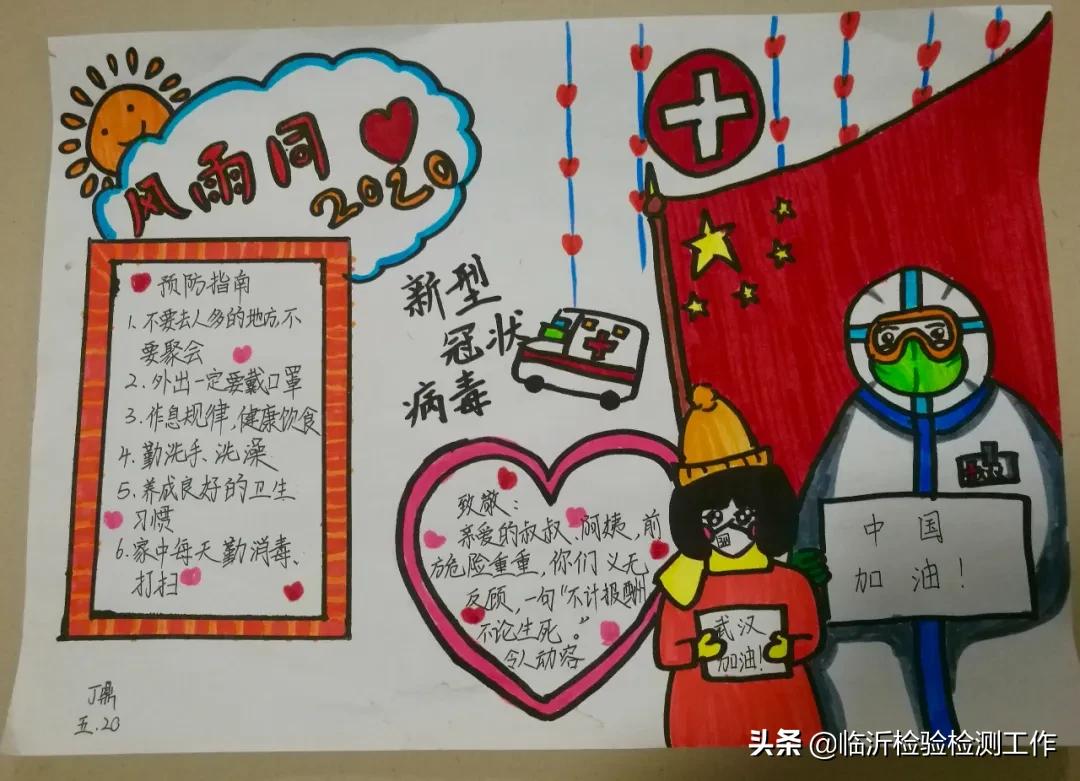 风雨同
2020
预防指南
1、不要去人多的地方,不
要聚会
2、外出一定要戴口罩
3、作息规律,健康饮食
4、勤洗手、洗澡
5、养成良好的卫生
习惯
6、家中每天勤消毒、
打扫
丁鼎
五.20
新型
冠状
病毒
致敬:
亲爱的叔叔、阿姨,前
方危险重重,你们义无
反顾,一句“不计报酬
不论生死。”
令人动容
武汉
加油!
中国
加油!
头条 @临沂检验检测工作